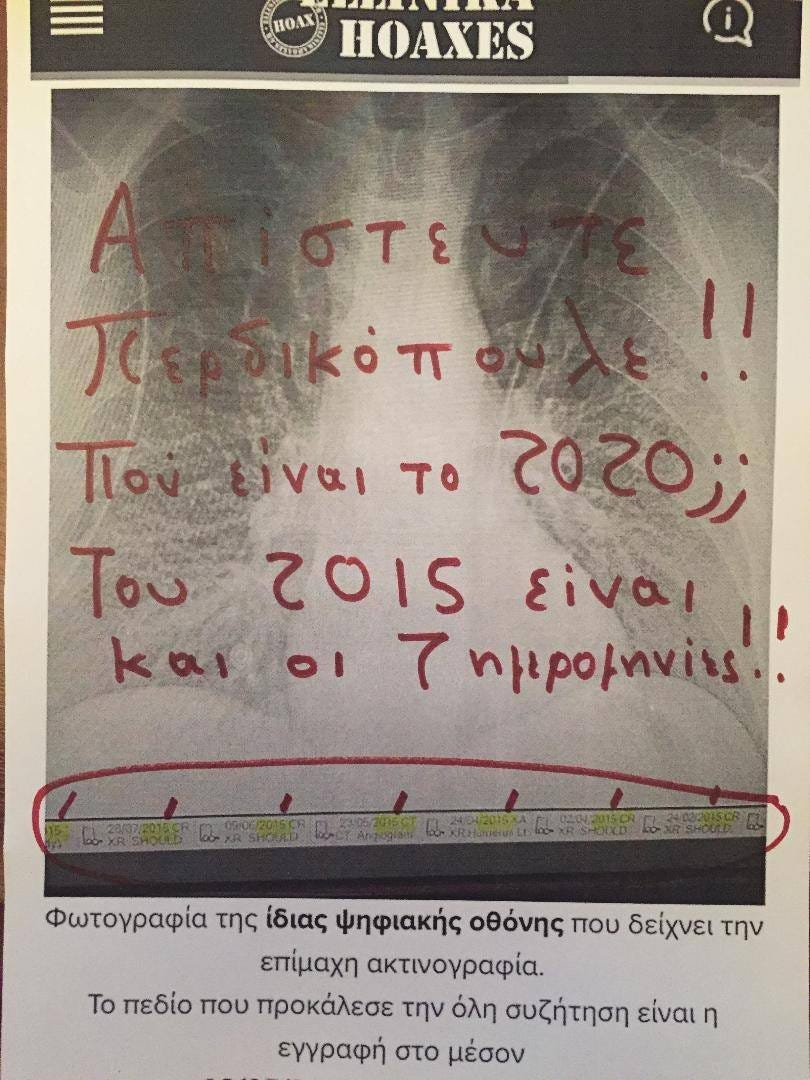 ELLINIKA
HOAX
HOAXES
Απίστευτε
Περδικόπουλε!!
Πού είναι το 2020;;
Του 2015 είναι
και οι 7 ημερομηνίες!!
28/07/2015 CR
XR SHOULD
05/06/2015 CR
XR SHOULD
23/05/2015 CT
CT Angiogram
24/04/2015 XA
XR Humerus Lt
02/04/2015 CR
XR SHOULD
24/02/2015 CR
XR SHOULD
Φωτογραφία της ίδιας ψηφιακής οθόνης που δείχνει την
επίμαχη ακτινογραφία.
Το πεδίο που προκάλεσε την όλη συζήτηση είναι η
εγγραφή στο μέσον